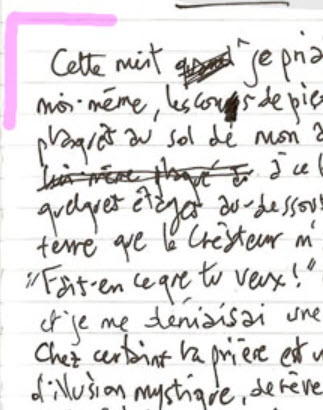 Cette nuit je pria
moi-même, les cou s de pie
plaqués au sol de mon a
lui-même plaqué à ce
quelques étages au-dessous
terre que le Créateur m'
"Fais-en ce que tu veux!"
et je me déniaisai une
Chez certains la prière est u
d'illusion mystique, de rêve